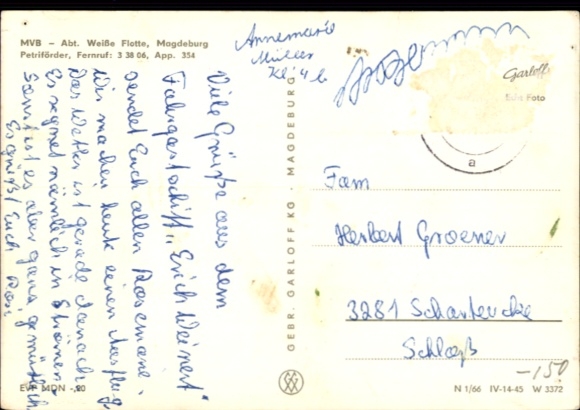 MVB – Abt. Weiße Flotte, Magdeburg
Petriförder, Fernruf: 3 38 06, App. 354
Annemarie
Müller
Kl. 4 b
Garloff
Echt Foto
a
Viele Grüße aus dem
Fahrgastschiff „Erich Weinert"
sendet Euch allen Rosemarie.
Wir machen heute einen Ausflug
Das Wetter ist gerade danach.
Es regnet nämlich in Strömen.
Sonst ist es aber ganz gemütlich
Es grüßt Euch Rosi
GEBR. GARLOFF KG · MAGDEBURG
Fam
Herbert Groener
3281 Scharteucke
Schloß
-,150
EVP MDN -,20
N 1/66 IV-14-45 W 3372